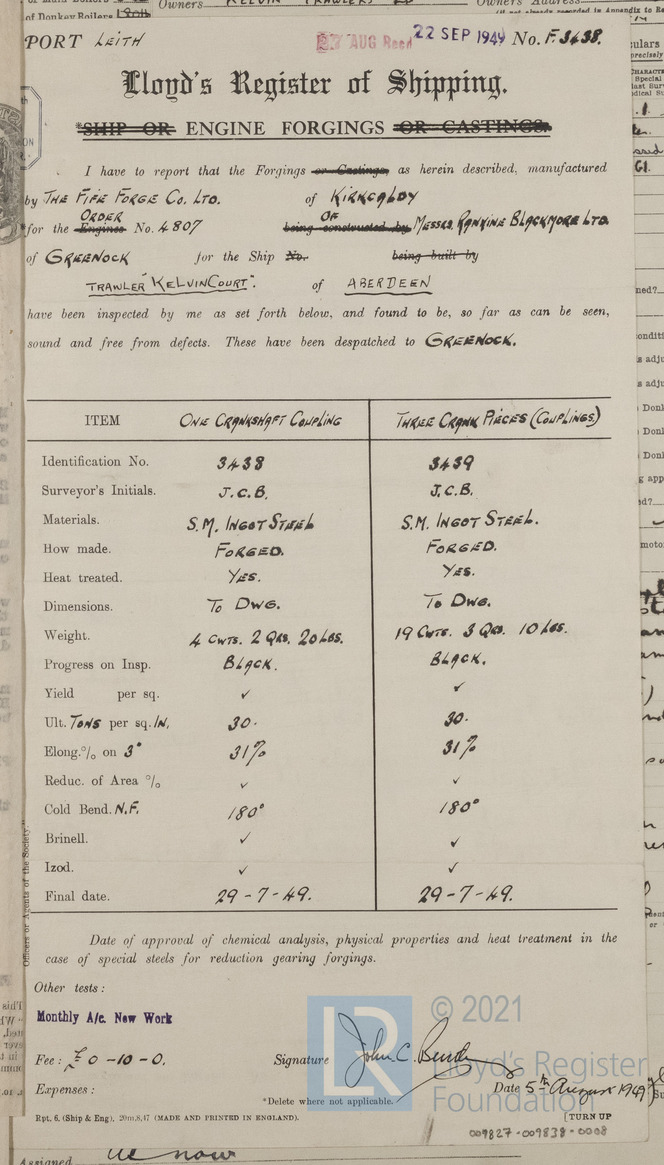 of Donkey Boilers
Owners KELVIN TRAWLERS LD
Owners' Address
(if not already recorded in Appendix to Re
PORT LEITH
AUG Recd 22 SEP 1949 No. F.3438.
Lloyd's Register of Shipping.
*SHIP OR ENGINE FORGINGS OR CASTINGS.
I have to report that the Forgings or Castings, as herein described, manufactured
by THE FIFE FORGE CO. LTD. of KIRKCALDY
ORDER OF
for the Engines No. 4807 being constructed by MESSRS. RANKINE BLACKMORE LTD.
of GREENOCK for the Ship No. being built by
TRAWLER "KELVINCOURT". of ABERDEEN
have been inspected by me as set forth below, and found to be, so far as can be seen,
sound and free from defects. These have been despatched to GREENOCK.
ITEM ONE CRANKSHAFT COUPLING THREE CRANK PIECES (COUPLINGS)
Identification No. 3438 3439
Surveyor's Initials. J.C.B. J.C.B.
Materials. S.M. INGOT STEEL S.M. INGOT STEEL.
How made. FORGED. FORGED.
Heat treated. YES. YES.
Dimensions. TO DWG. TO DWG.
Weight. 4 CWTS. 2 QRS. 20 LBS. 19 CWTS. 3 QRS. 10 LBS.
Progress on Insp. BLACK. BLACK.
Yield per sq. ✓ ✓
Ult. TONS per sq. IN, 30. 30.
Elong.% on 3" 31% 31%
Reduc. of Area % ✓ ✓
Cold Bend. N.F. 180° 180°
Brinell. ✓ ✓
Izod. ✓ ✓
Final date. 29-7-49. 29-7-49.
Officers or Agents of the Society."
Date of approval of chemical analysis, physical properties and heat treatment in the
case of special steels for reduction gearing forgings.
Other tests:
Monthly A/c. New Work
LR © 2021
Lloyd's Register
Foundation
Fee: £ 0-10-0. Signature John C.
Expenses: Date 5th August 1949
*Delete where not applicable.
Rpt. 6. (Ship & Eng), 20m.8,47 (MADE AND PRINTED IN ENGLAND). [TURN UP
009827-009838-0008
Assigned